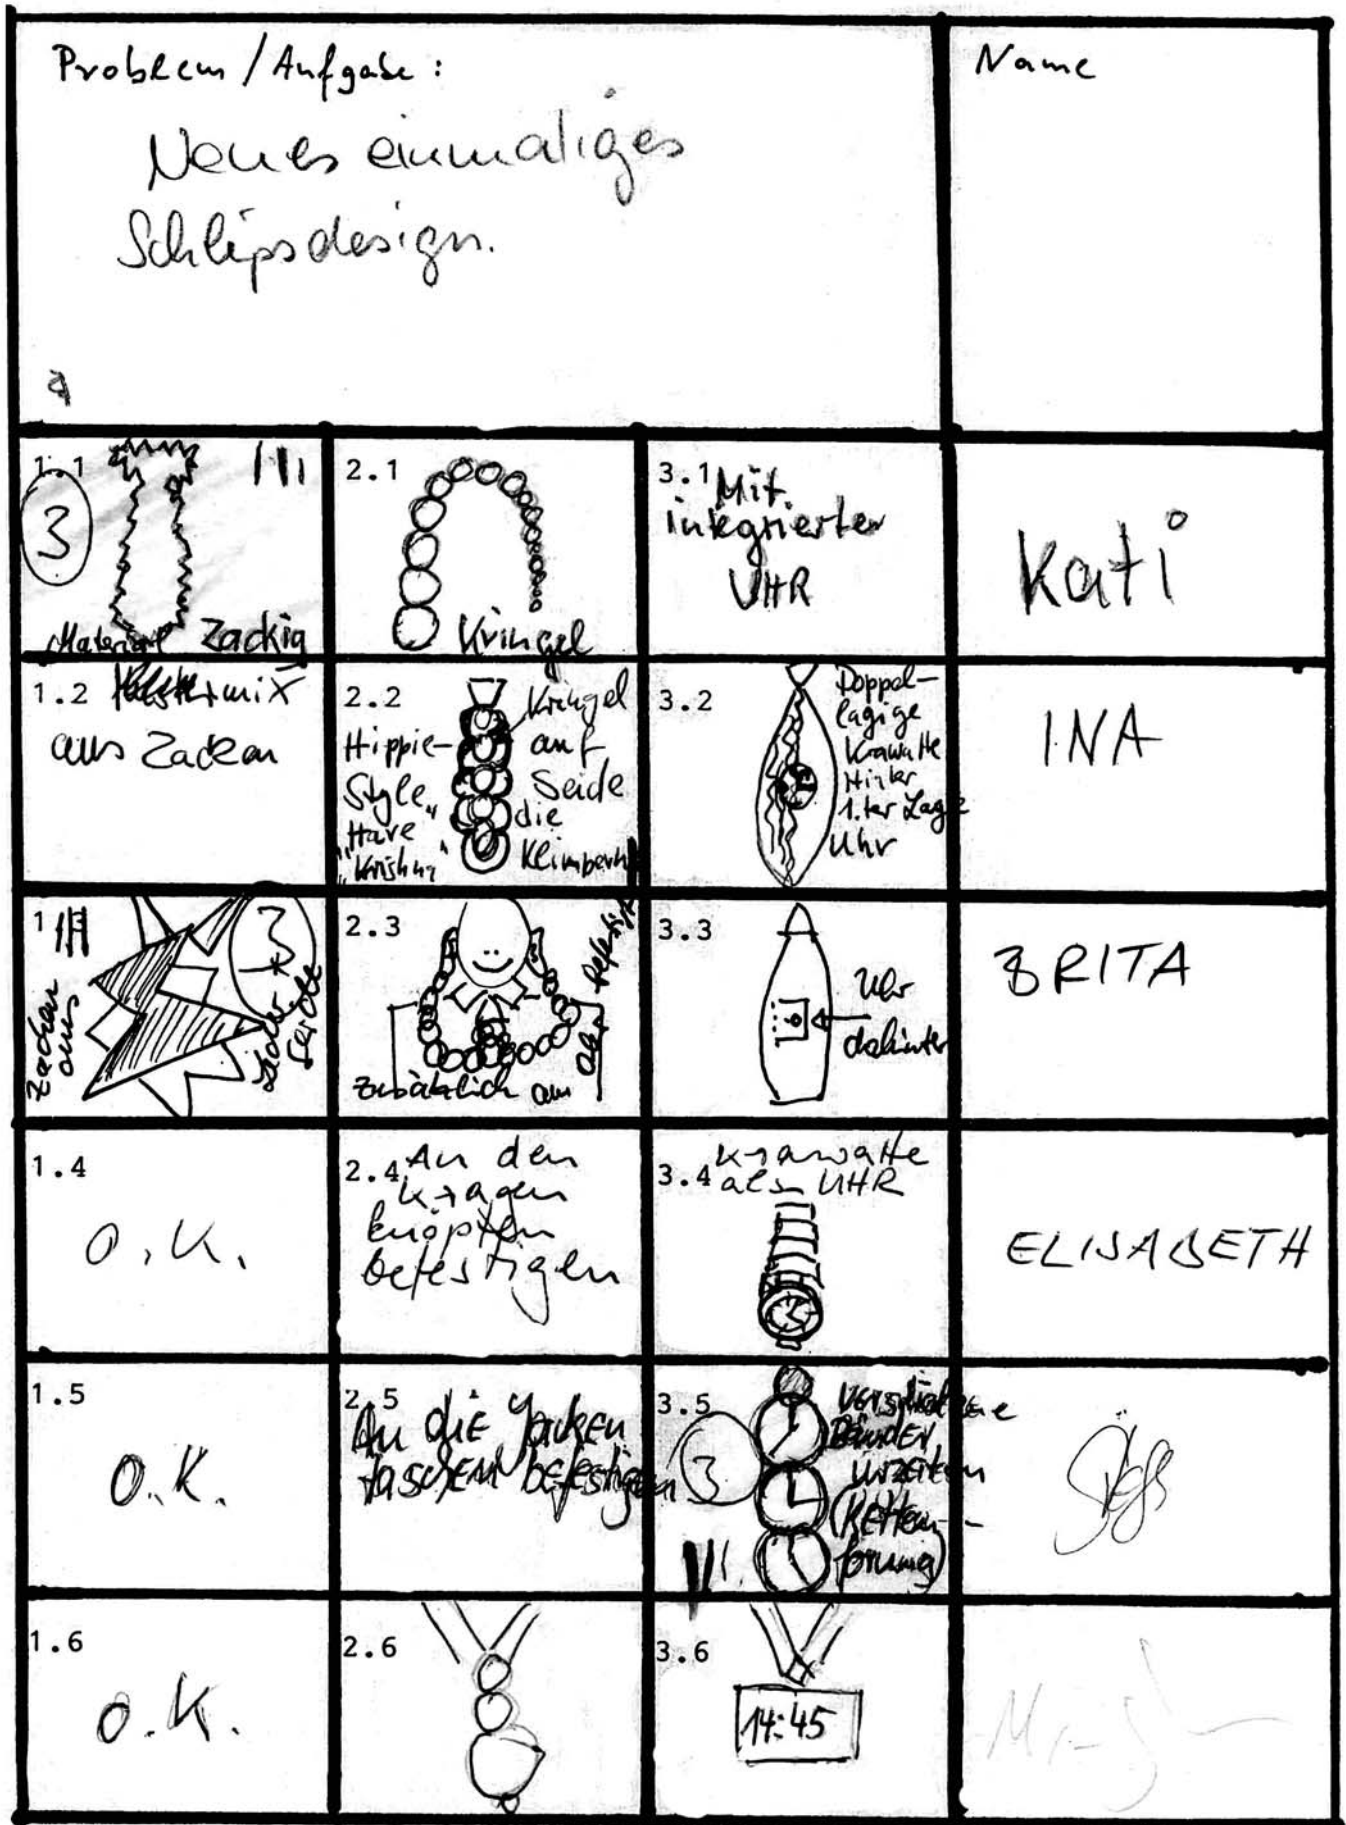 Problem / Aufgabe:
Name
Neues einmaliges
Schlipsdesign.
1.1
3
Material Zackig
2.1
Kringel
3.1 Mit
integrierter
UHR
Kati
1.2
mix
aus Zacken
2.2
Hippie-
Style
"Hare
Krishna"
Kringel
auf
Seide
die
Klimpern
3.2
Doppel-
lagige
Krawatte
Hinter
1.ter Lage
Uhr
INA
1
3
Zacken
aus
Seide
2.3
zusätzlich am
3.3
Uhr
dahinter
BRITA
1.4
O.K.
2.4 An den
Kragen
knöpfen
befestigen
3.4 Krawatte
als UHR
ELISABETH
1.5
O.K.
2.5
An die Jacken
taschen befestigen
3.5
3
verschiedene
Bänder
Uhrzeiten
(Ketten-
förmig)
1.6
O.K.
2.6
3.6
14:45